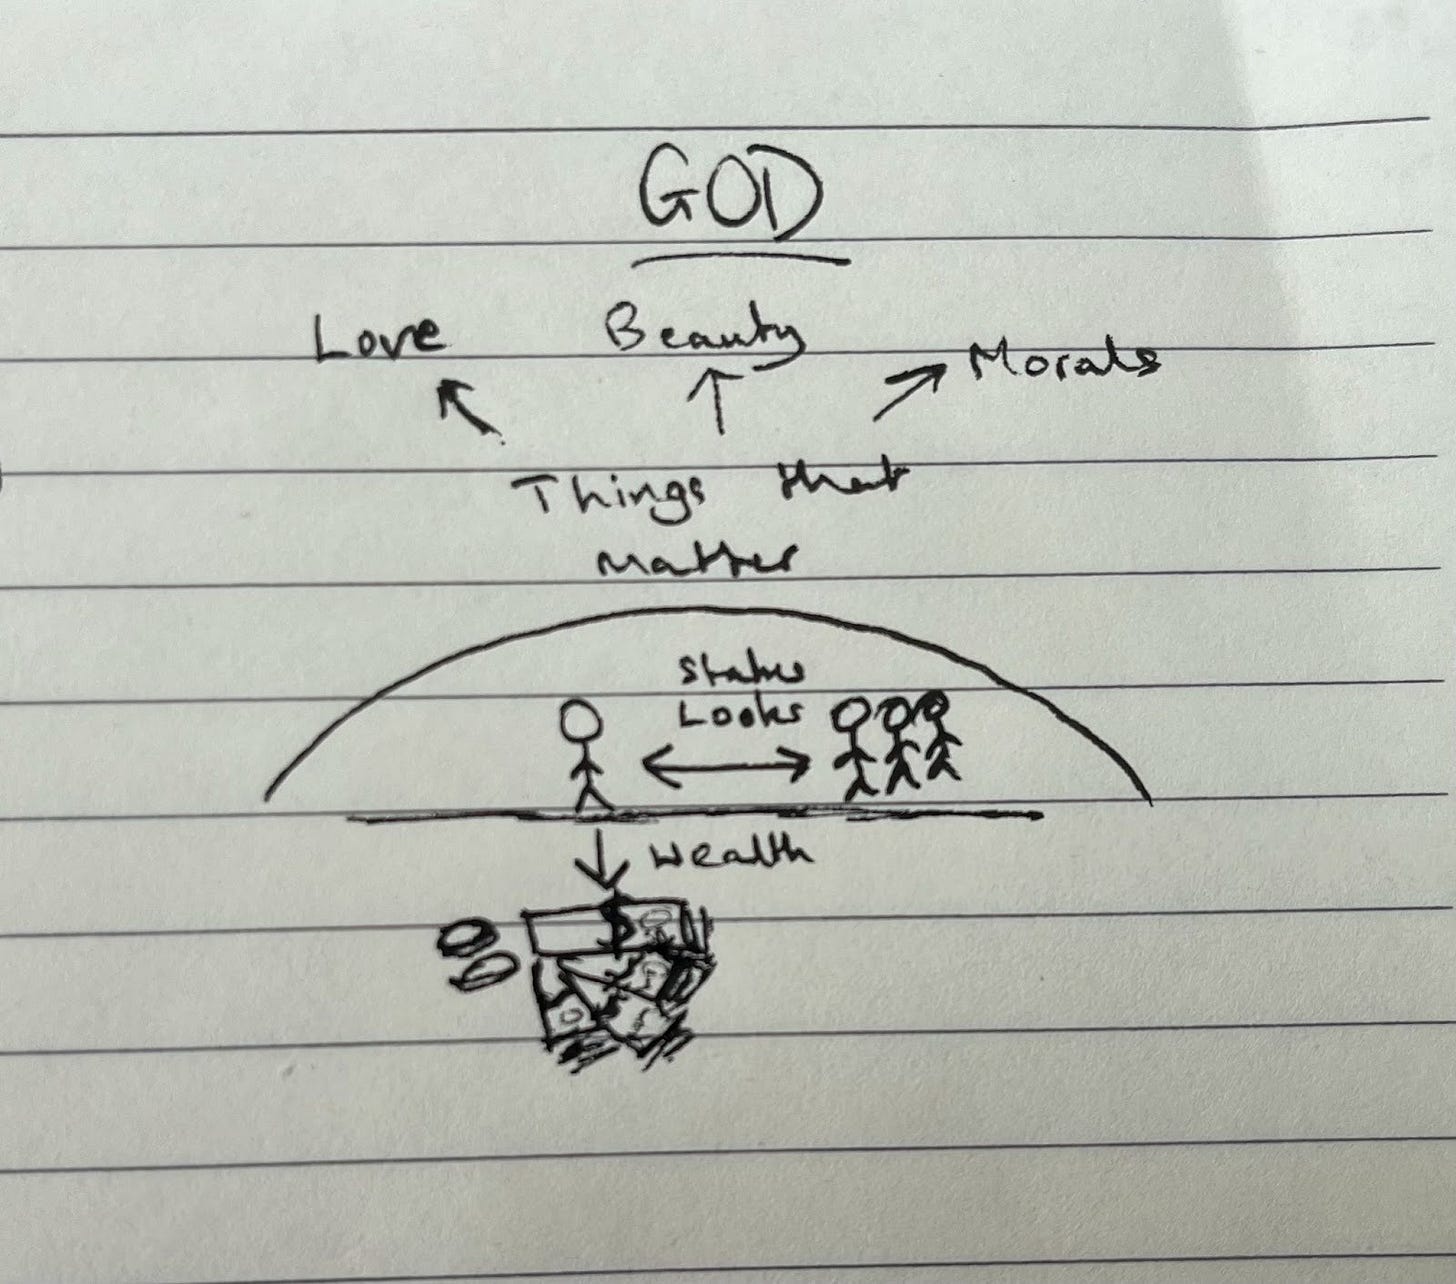 GOD
Love Beauty Morals
Things that
Matter
Status
Looks
Wealth
$